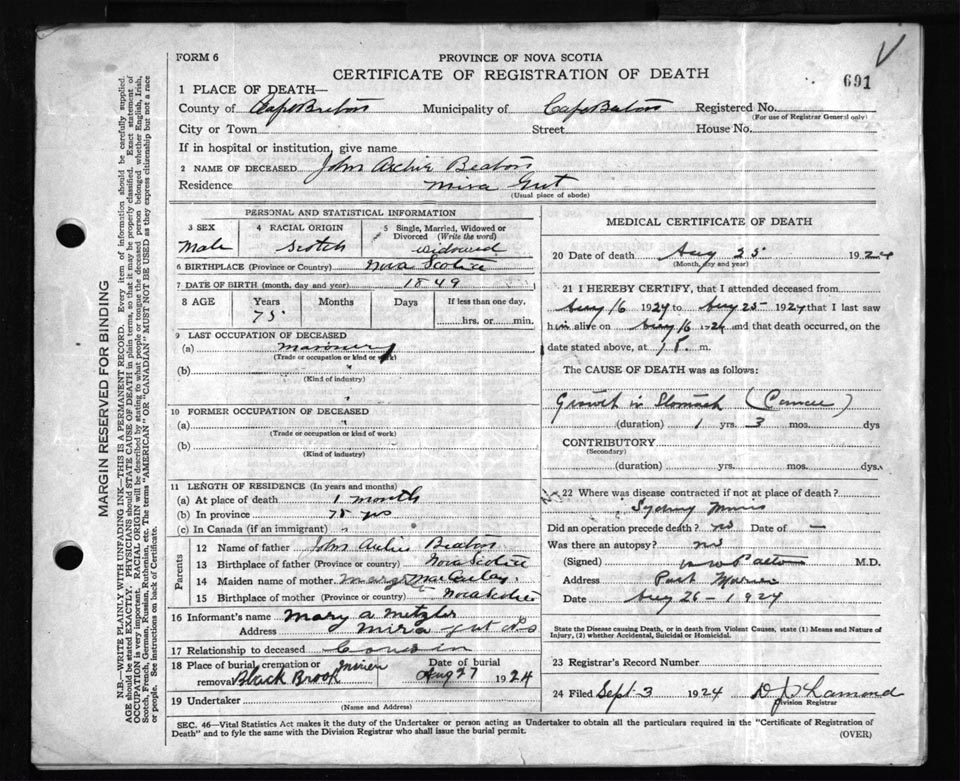 FORM 6
PROVINCE OF NOVA SCOTIA
CERTIFICATE OF REGISTRATION OF DEATH
691
1 PLACE OF DEATH—
County of Cape Breton Municipality of Cape Breton Registered No.
(For use of Registrar General only)
City or Town Street House No.
If in hospital or institution, give name
2 NAME OF DECEASED John Archie Beaton
Residence Mira Gut
(Usual place of abode)
PERSONAL AND STATISTICAL INFORMATION
3 SEX 4 RACIAL ORIGIN 5 Single, Married, Widowed or Divorced (Write the word)
Male Scotch Widowed
6 BIRTHPLACE (Province or Country) Nova Scotia
7 DATE OF BIRTH (month, day and year) 1849
8 AGE Years Months Days If less than one day,
75 hrs. or min.
9 LAST OCCUPATION OF DECEASED
(a)
(Trade or occupation or kind of work)
(b)
(Kind of industry)
10 FORMER OCCUPATION OF DECEASED
(a)
(Trade or occupation or kind of work)
(b)
(Kind of industry)
11 LENGTH OF RESIDENCE (In years and months)
(a) At place of death 1 month
(b) In province 75 yrs
(c) In Canada (if an immigrant)
Parents
12 Name of father John Archie Beaton
13 Birthplace of father (Province or country) Nova Scotia
14 Maiden name of mother
15 Birthplace of mother (Province or country) Nova Scotia
16 Informant's name Mary A Metzler
Address Mira Gut
17 Relationship to deceased Cousin
18 Place of burial, cremation or removal Black Brook Date of burial Aug 27 1924
19 Undertaker
(Name and Address)
MEDICAL CERTIFICATE OF DEATH
20 Date of death Aug 25 1924
(Month, day and year)
21 I HEREBY CERTIFY, that I attended deceased from
Aug 16 1924 to Aug 25 1924 that I last saw
him alive on Aug 16 1924 and that death occurred, on the
date stated above, at m.
The CAUSE OF DEATH was as follows:
Growth in Stomach (Cancer)
(duration) 1 yrs. 3 mos. dys
CONTRIBUTORY
(Secondary)
(duration) yrs. mos. dys.
22 Where was disease contracted if not at place of death?
Sydney Mines
Did an operation precede death? no Date of —
Was there an autopsy? no
(Signed) M.D.
Address Port Morien
Date Aug 26 - 1924
State the Disease causing Death, or in death from Violent Causes, state (1) Means and Nature of Injury, (2) whether Accidental, Suicidal or Homicidal.
23 Registrar's Record Number
24 Filed Sept 3 1924
Division Registrar
SEC. 46—Vital Statistics Act makes it the duty of the Undertaker or person acting as Undertaker to obtain all the particulars required in the "Certificate of Registration of
Death" and to fyle the same with the Division Registrar who shall issue the burial permit.
(OVER)
MARGIN RESERVED FOR BINDING
N.B.—WRITE PLAINLY WITH UNFADING INK—THIS IS A PERMANENT RECORD. Every item of information should be carefully supplied.
AGE should be stated EXACTLY. PHYSICIANS should STATE CAUSE OF DEATH in plain terms, so that it may be properly classified. Exact statement of
OCCUPATION is very important. RACIAL ORIGIN will be described by stating to what people or tongue the deceased person belonged whether English, Irish,
Scotch, French, German, Russian, Ruthenian, etc. The terms "AMERICAN" OR "CANADIAN" MUST NOT BE USED as they express citizenship but not a race
or people. See instructions on back of Certificate.